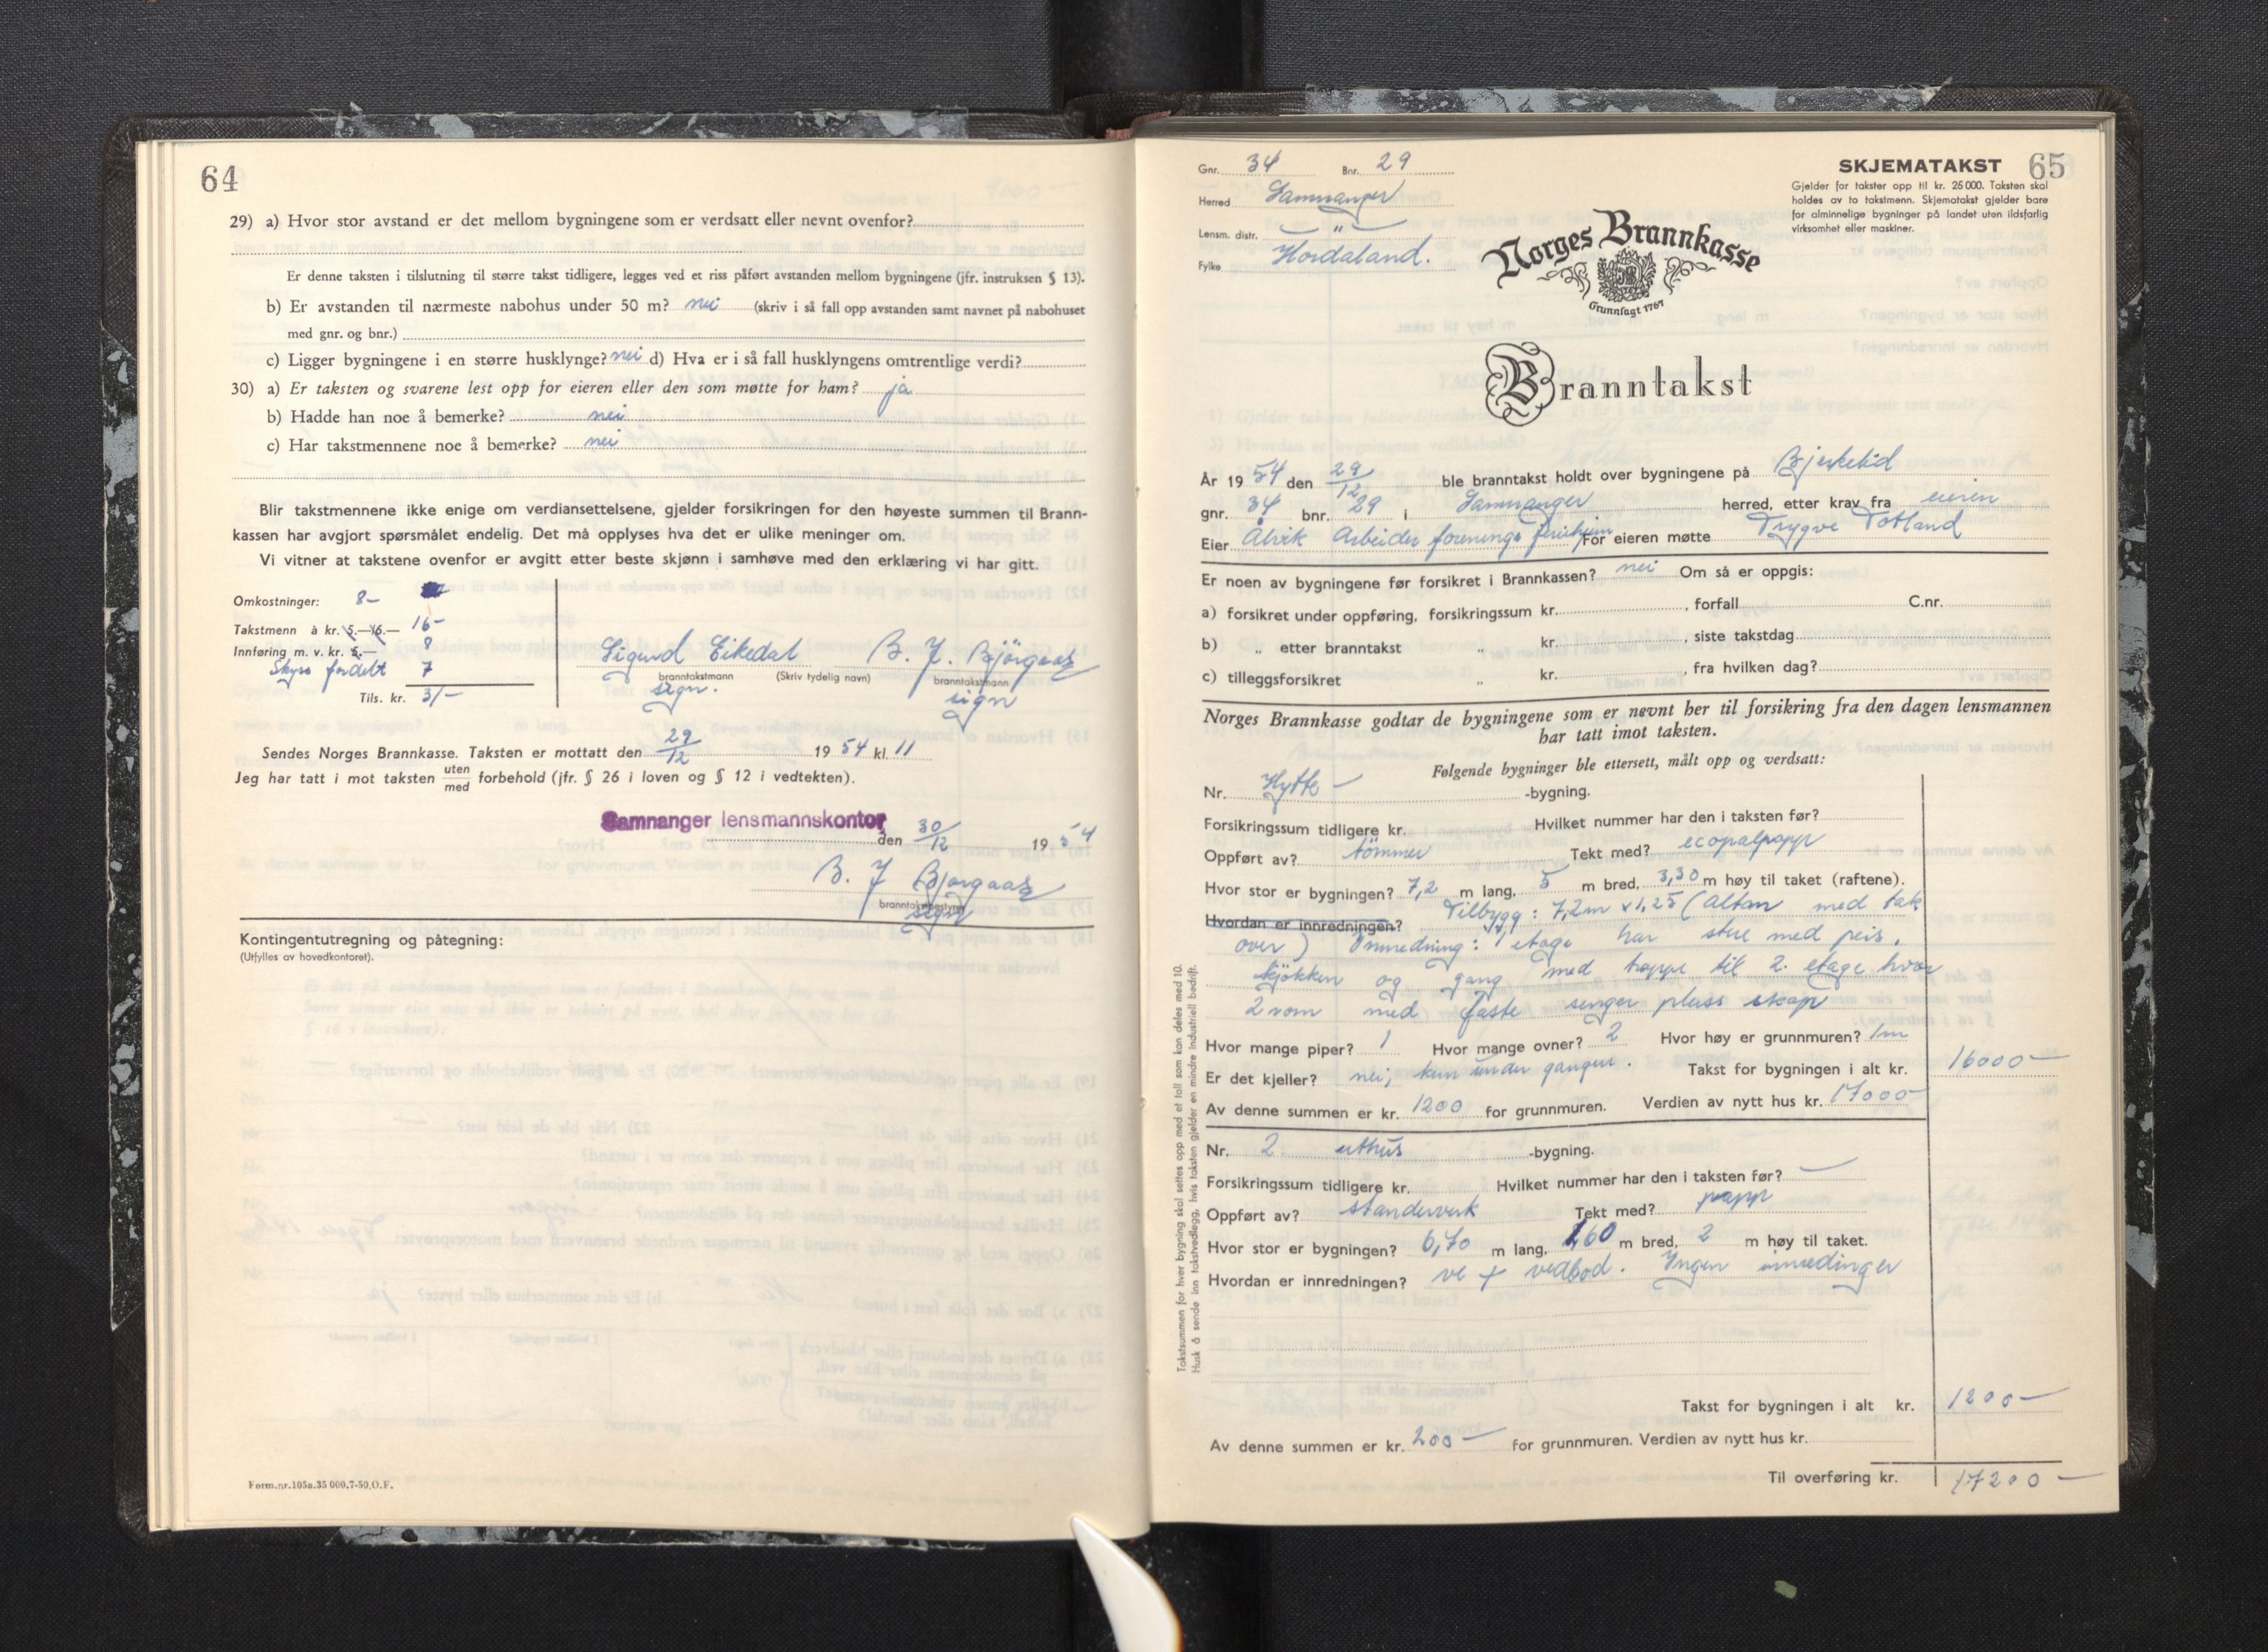 64
29) a) Hvor stor avstand er det mellom bygningene som er verdsatt eller nevnt ovenfor?
Er denne taksten i tilslutning til større takst tidligere, legges ved et riss påført avstanden mellom bygningene (jfr. instruksen § 13).
b) Er avstanden til nærmeste nabohus under 50 m? nei (skriv i så fall opp avstanden samt navnet på nabohuset
med gnr. og bnr.)
c) Ligger bygningene i en større husklynge? nei d) Hva er i så fall husklyngens omtrentlige verdi?
30) a) Er taksten og svarene lest opp for eieren eller den som møtte for ham? ja
b) Hadde han noe å bemerke? nei
c) Har takstmennene noe å bemerke? nei
Blir takstmennene ikke enige om verdiansettelsene, gjelder forsikringen for den høyeste summen til Brann-
kassen har avgjort spørsmålet endelig. Det må opplyses hva det er ulike meninger om.
Vi vitner at takstene ovenfor er avgitt etter beste skjønn i samhøve med den erklæring vi har gitt.
Omkostninger: 8-
Takstmenn à kr. 5.—/6.— 16-
Innføring m. v. kr. 5.— 8
Skyss fordelt 7
Tils. kr. 31-
Sigurd Eikedal B. J. Bjørgaas
branntakstmann (Skriv tydelig navn) branntakstmann
sign. sign
Sendes Norges Brannkasse. Taksten er mottatt den 29/12 19 54 kl. 11
Jeg har tatt i mot taksten uten/med forbehold (jfr. § 26 i loven og § 12 i vedtekten).
Samnanger lensmannskontor den 30/12 19 54
B. J Bjørgaas
branntakstbestyrer
sign
Kontingentutregning og påtegning:
(Utfylles av hovedkontoret).
Form.nr.105a.35 000.7-50.O.F.
Gnr. 34 Bnr. 29
Herred Samnanger
Lensm. distr. — " —
Fylke Hordaland.
SKJEMATAKST 65
Gjelder for takster opp til kr. 25 000. Taksten skal
holdes av to takstmenn. Skjematakst gjelder bare
for alminnelige bygninger på landet uten ildsfarlig
virksomhet eller maskiner.
Norges Brannkasse
Grunnlagt 1767
Branntakst
År 19 54 den 29/12 ble branntakst holdt over bygningene på Bjerkelid
gnr. 34 bnr. 29 i Samnanger herred, etter krav fra eieren
Eier Ålvik Arbeider forenings feriehjem For eieren møtte Trygve Totland
Er noen av bygningene før forsikret i Brannkassen? nei Om så er oppgis:
a) forsikret under oppføring, forsikringssum kr. , forfall C.nr.
b) „ etter branntakst „ kr. , siste takstdag
c) tilleggsforsikret „ kr. , fra hvilken dag?
Norges Brannkasse godtar de bygningene som er nevnt her til forsikring fra den dagen lensmannen
har tatt imot taksten.
Følgende bygninger ble ettersett, målt opp og verdsatt:
Nr. Hytte - -bygning.
Forsikringssum tidligere kr. Hvilket nummer har den i taksten før?
Oppført av? tömmer Tekt med? ecopalpapp
Hvor stor er bygningen? 7,2 m lang, 5 m bred, 3,30 m høy til taket (raftene).
Hvordan er innredningen? Tilbygg: 7,2m x 1,25 (altan med tak
over) Innredning: 1 etage har stue med peis,
kjökken og gang med trappe til 2. etage hvor
2 rom med faste senger pluss skap
Hvor mange piper? 1 Hvor mange ovner? 2 Hvor høy er grunnmuren? 1m
Er det kjeller? nei, kun under gangen. Takst for bygningen i alt kr. 16000-
Av denne summen er kr. 1200 for grunnmuren. Verdien av nytt hus kr. 17000-
Nr. 2 uthus -bygning.
Forsikringssum tidligere kr. Hvilket nummer har den i taksten før? —
Oppført av? standerverk Tekt med? papp
Hvor stor er bygningen? 6,70 m lang, 1,60 m bred, 2 m høy til taket.
Hvordan er innredningen? vc + vedbod. Ingen innredinger
Takst for bygningen i alt kr. 1200-
Av denne summen er kr. 200- for grunnmuren. Verdien av nytt hus kr.
Til overføring kr. 17200-
Takstsummen for hver bygning skal settes opp med et tall som kan deles med 10.
Husk å sende inn takstvedlegg, hvis taksten gjelder en mindre industriell bedrift.